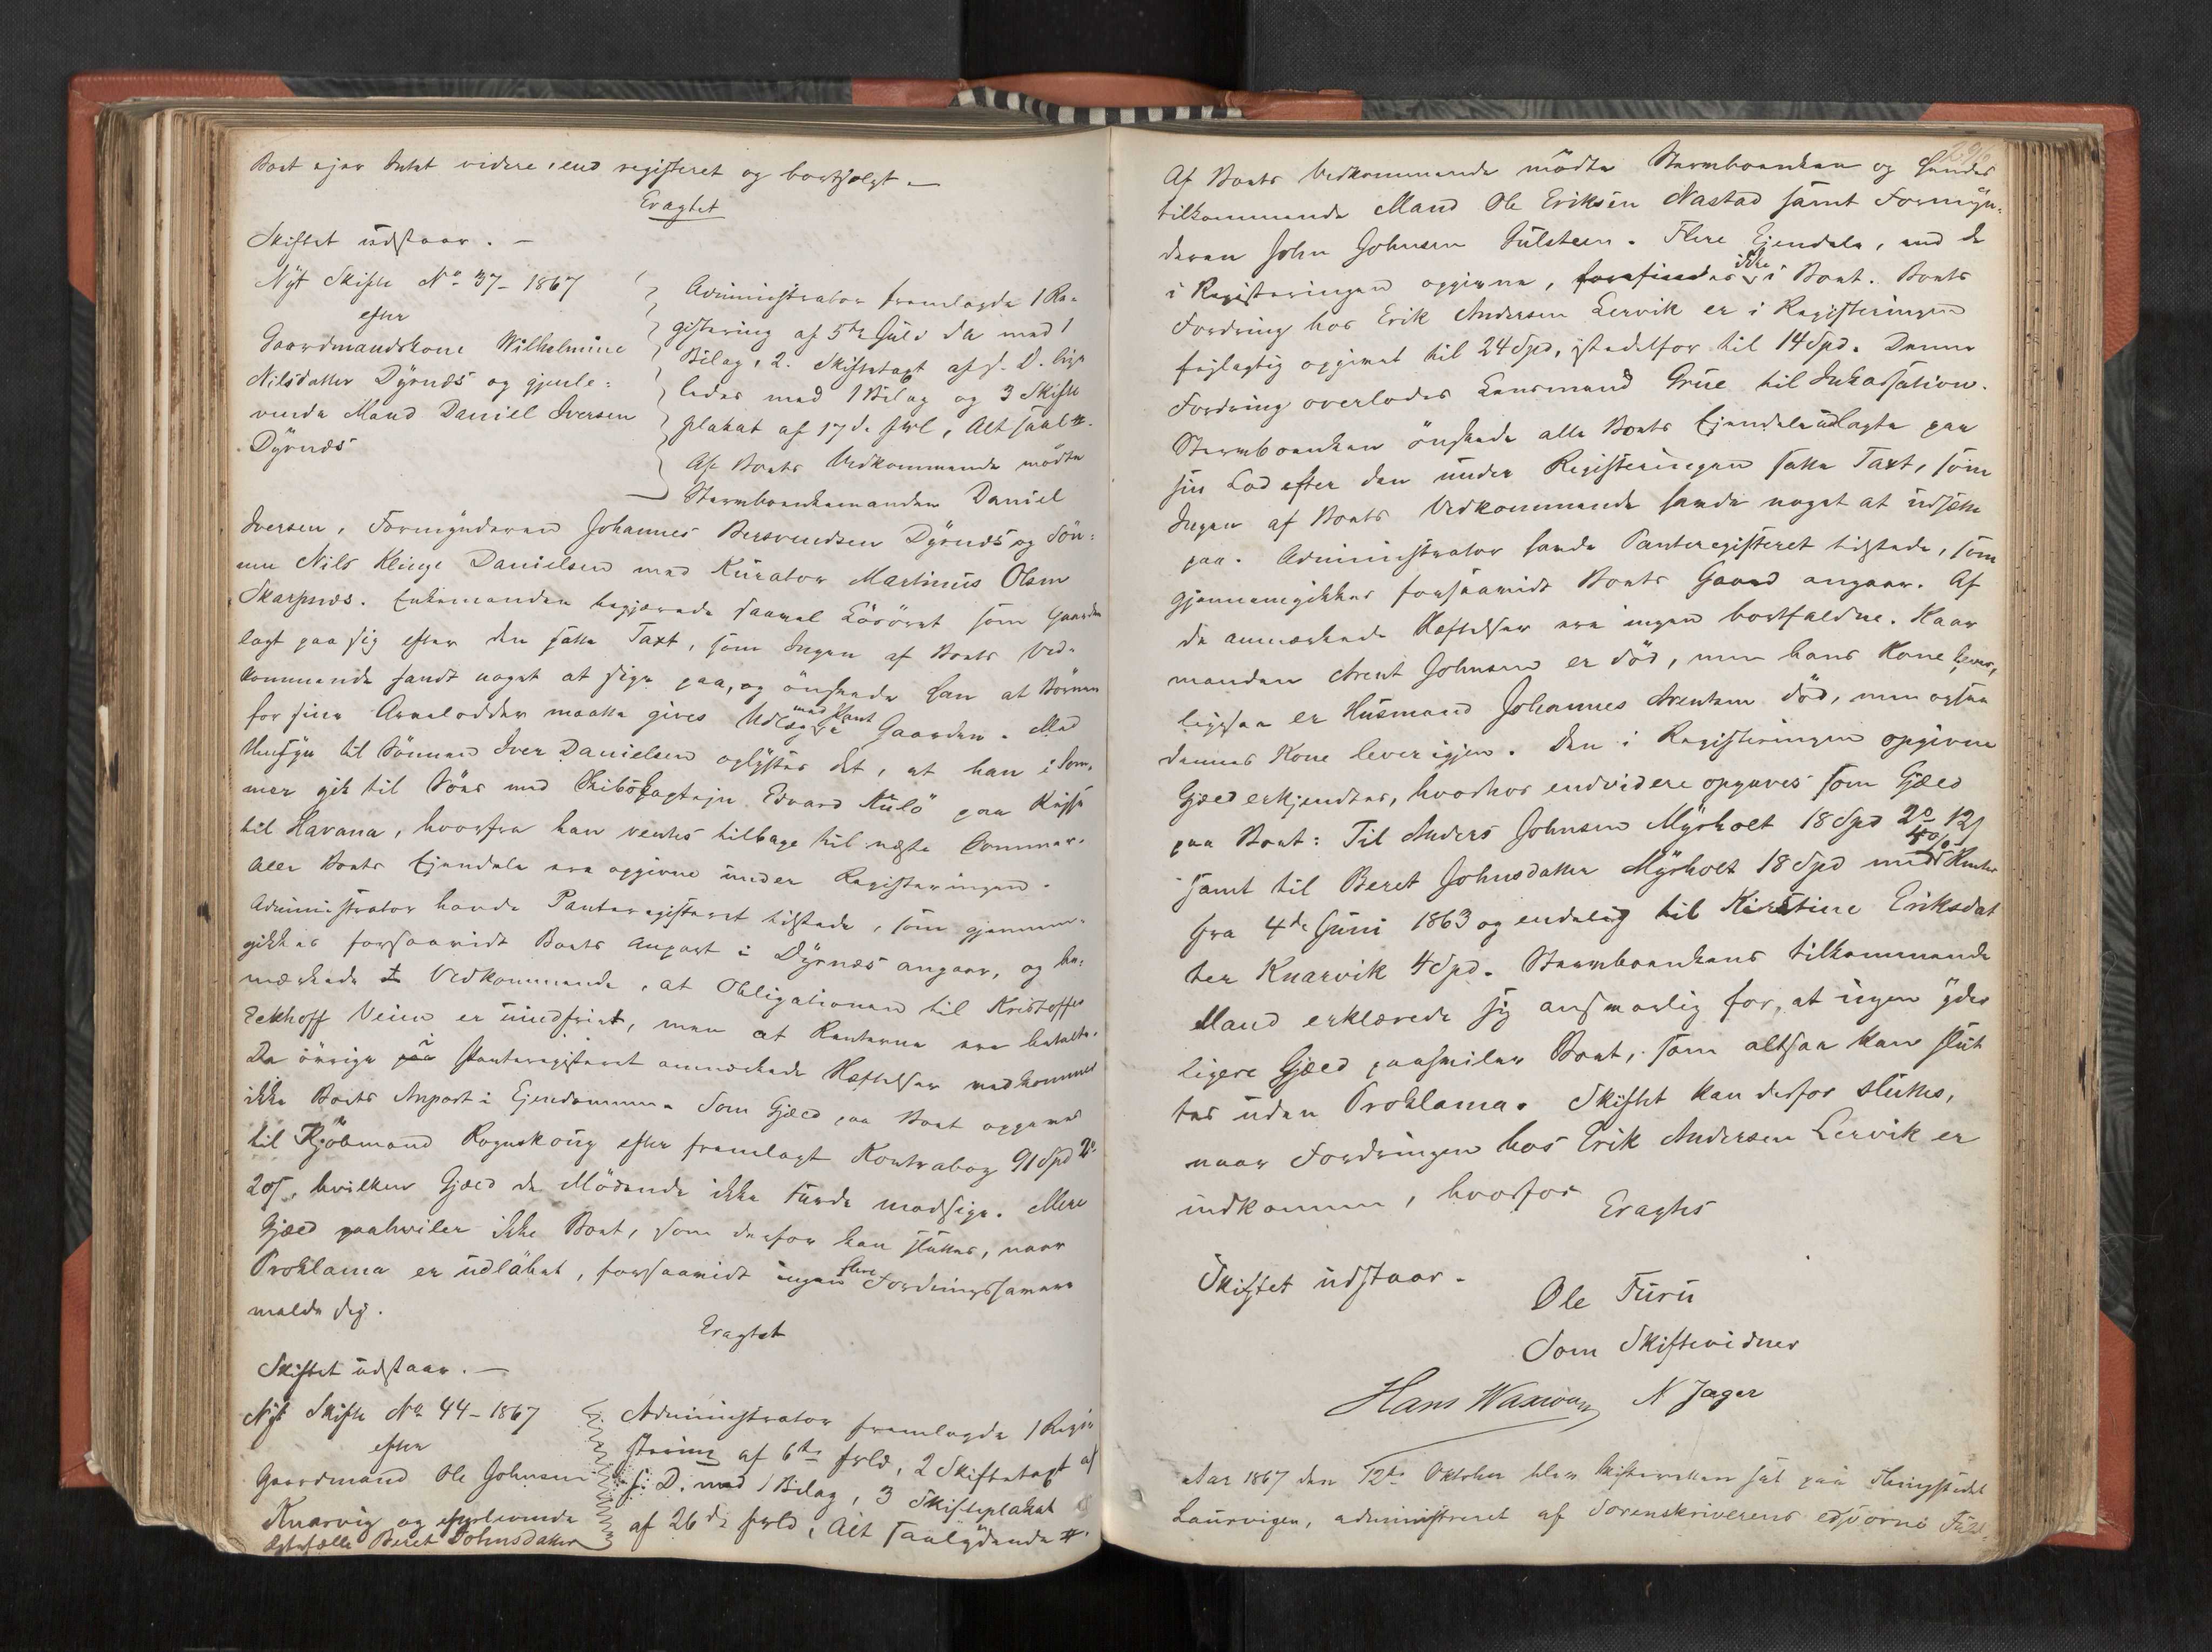 Boet ejer Intet videre, end registeret og bortsolgt. —
Eragtet
Skiftet udstaar. —
Nyt Skifte No 37 - 1867
efter
Gaardmandskone Wilhelmine
Nilsdatter Dyrnæs og gjenle-
vende Mand Daniel Iversen
Dyrnæs
Administrator fremlagde 1 Re-
gistering af 5te Juli da med 1
Bilag, 2. Skiftetagt af s. D. lige-
ledes med 1 Bilag og 3 Skifte
plakat af 17de  Alt saal #.
Af Boets Vedkommende mødte
Stervboenkemanden Daniel
Iversen, Formynderen Johannes Bersvendsen Dyrnæs og Søn-
nen Nils Klinge Danielsen med Kurator Martinus Olsen
Skarpnæs. Enkemanden begjærede saavel Løsøret som Gaarden
lagt paa sig efter den satte Taxt, som Ingen af Boets Ved-
kommende fandt noget at sige paa, og ønskede han at Børnene
for sine Arvelodder maatte gives Udlæg med Pant i Gaarden. Med
Hensyn til Sønnen Iver Danielsen oplystes det, at han i Som-
mer gik til Søes med Skibet Edvard paa Reise
til Havana, hvorfra han ventes tilbage til næste Sommer.
Alle Boets Ejendele ere opgivne under Registeringen.
Administrator havde Panteregisteret tilstede, som gjennem-
gikkes forsaavidt Boets Anpart i Dyrnæs angaar, og be-
mærkede Vedkommende, at Obligationen til Kristoffer
Eckhoff Veien er uindfriet, men at Renterne ere betalte.
De øvrige i Panteregisteret anmærkede Hæftelser vedkommer
ikke Boets Anpart i Ejendommen. Som Gjæld paa Boet opgaves
til Kjøbmand Rognskoug efter fremlagt Kontrabog 91 Spd 2
20 s, hvilken Gjæld de Mødende ikke turde modsige. Mere
Gjæld paahviler ikke Boet, som derfor kan sluttes, naar
Proklama er udløbet, forsaavidt ingen flere Fordringshavere
melde sig.
Eragtet
Skiftet udstaar. —
Nyt Skifte No 44 - 1867
efter
Gaardmand Ole Johnsen
Knarvig og efterlevende
Ægtefælle Beret Johnsdatter
Administrator fremlagde 1 Regi-
stering af 6te  2 Skiftetagt af
s. D. med 1 Bilag, 3 Skifteplakat
af 26de  Alt saalydende #.
296
Af Boets Vedkommende mødte Stervboenken og hendes
tilkommende Mand Ole Eriksen Nastad samt Formyn-
deren John Johnsen Fulsteen. Flere Ejendele, end de
i Registeringen opgivne, forefindes ikke i Boet. Boets
Fordring hos Erik Andersen Lervik er i Registeringen
feilagtig opgivet til 24 Spd, istedetfor til 14 Spd. Denne
Fordring overlodes Lensmand Grue til Inkassation.
Stervboenken ønskede alle Boets Ejendele udlagte paa
sin Lod efter den under Registeringen satte Taxt, som
Ingen af Boets Vedkommende havde noget at udsætte
paa. Administrator havde Panteregisteret tilstede, som
gjennemgikkes forsaavidt Boets Gaard angaar. Af
de anmærkede Hæftelser ere ingen bortfaldne. Kaar
manden Arent Johnsen er død, men hans Kone lever,
ligesaa er Husmand Johannes Arentsen død, men ogsaa
dennes Kone lever igjen. Den i Registeringen opgivne
Gjæld erkjendtes, hvorhos endvidere opgaves som Gjæld
paa Boet: Til Anders Johnsen Myrholt 18 Spd 2 12 s
samt til Beret Johnsdatter Myrholt 18 Spd med 4 % Renter
fra 4de Juni 1863 og endelig til Kirstine Eriksdat
ter Knarvik 4 Spd. Stervboenkens tilkommende
Mand erklærede sig ansvarlig for, at ingen yder
ligere Gjæld paahviler Boet, som altsaa kan slut
tes uden Proklama. Skiftet kan derfor sluttes,
naar Fordringen hos Erik Andersen Lervik er
indkommen, hvorfor
Eragtes
Skiftet udstaar.
Ole Furu
Som Skiftevidner
Hans Waxvaag N Jager
Aar 1867 den 12te Oktober blev Skifteretten sat paa Thingstedet
Laurvigen, administreret af Sorenskriverens edsvorne Fuld-